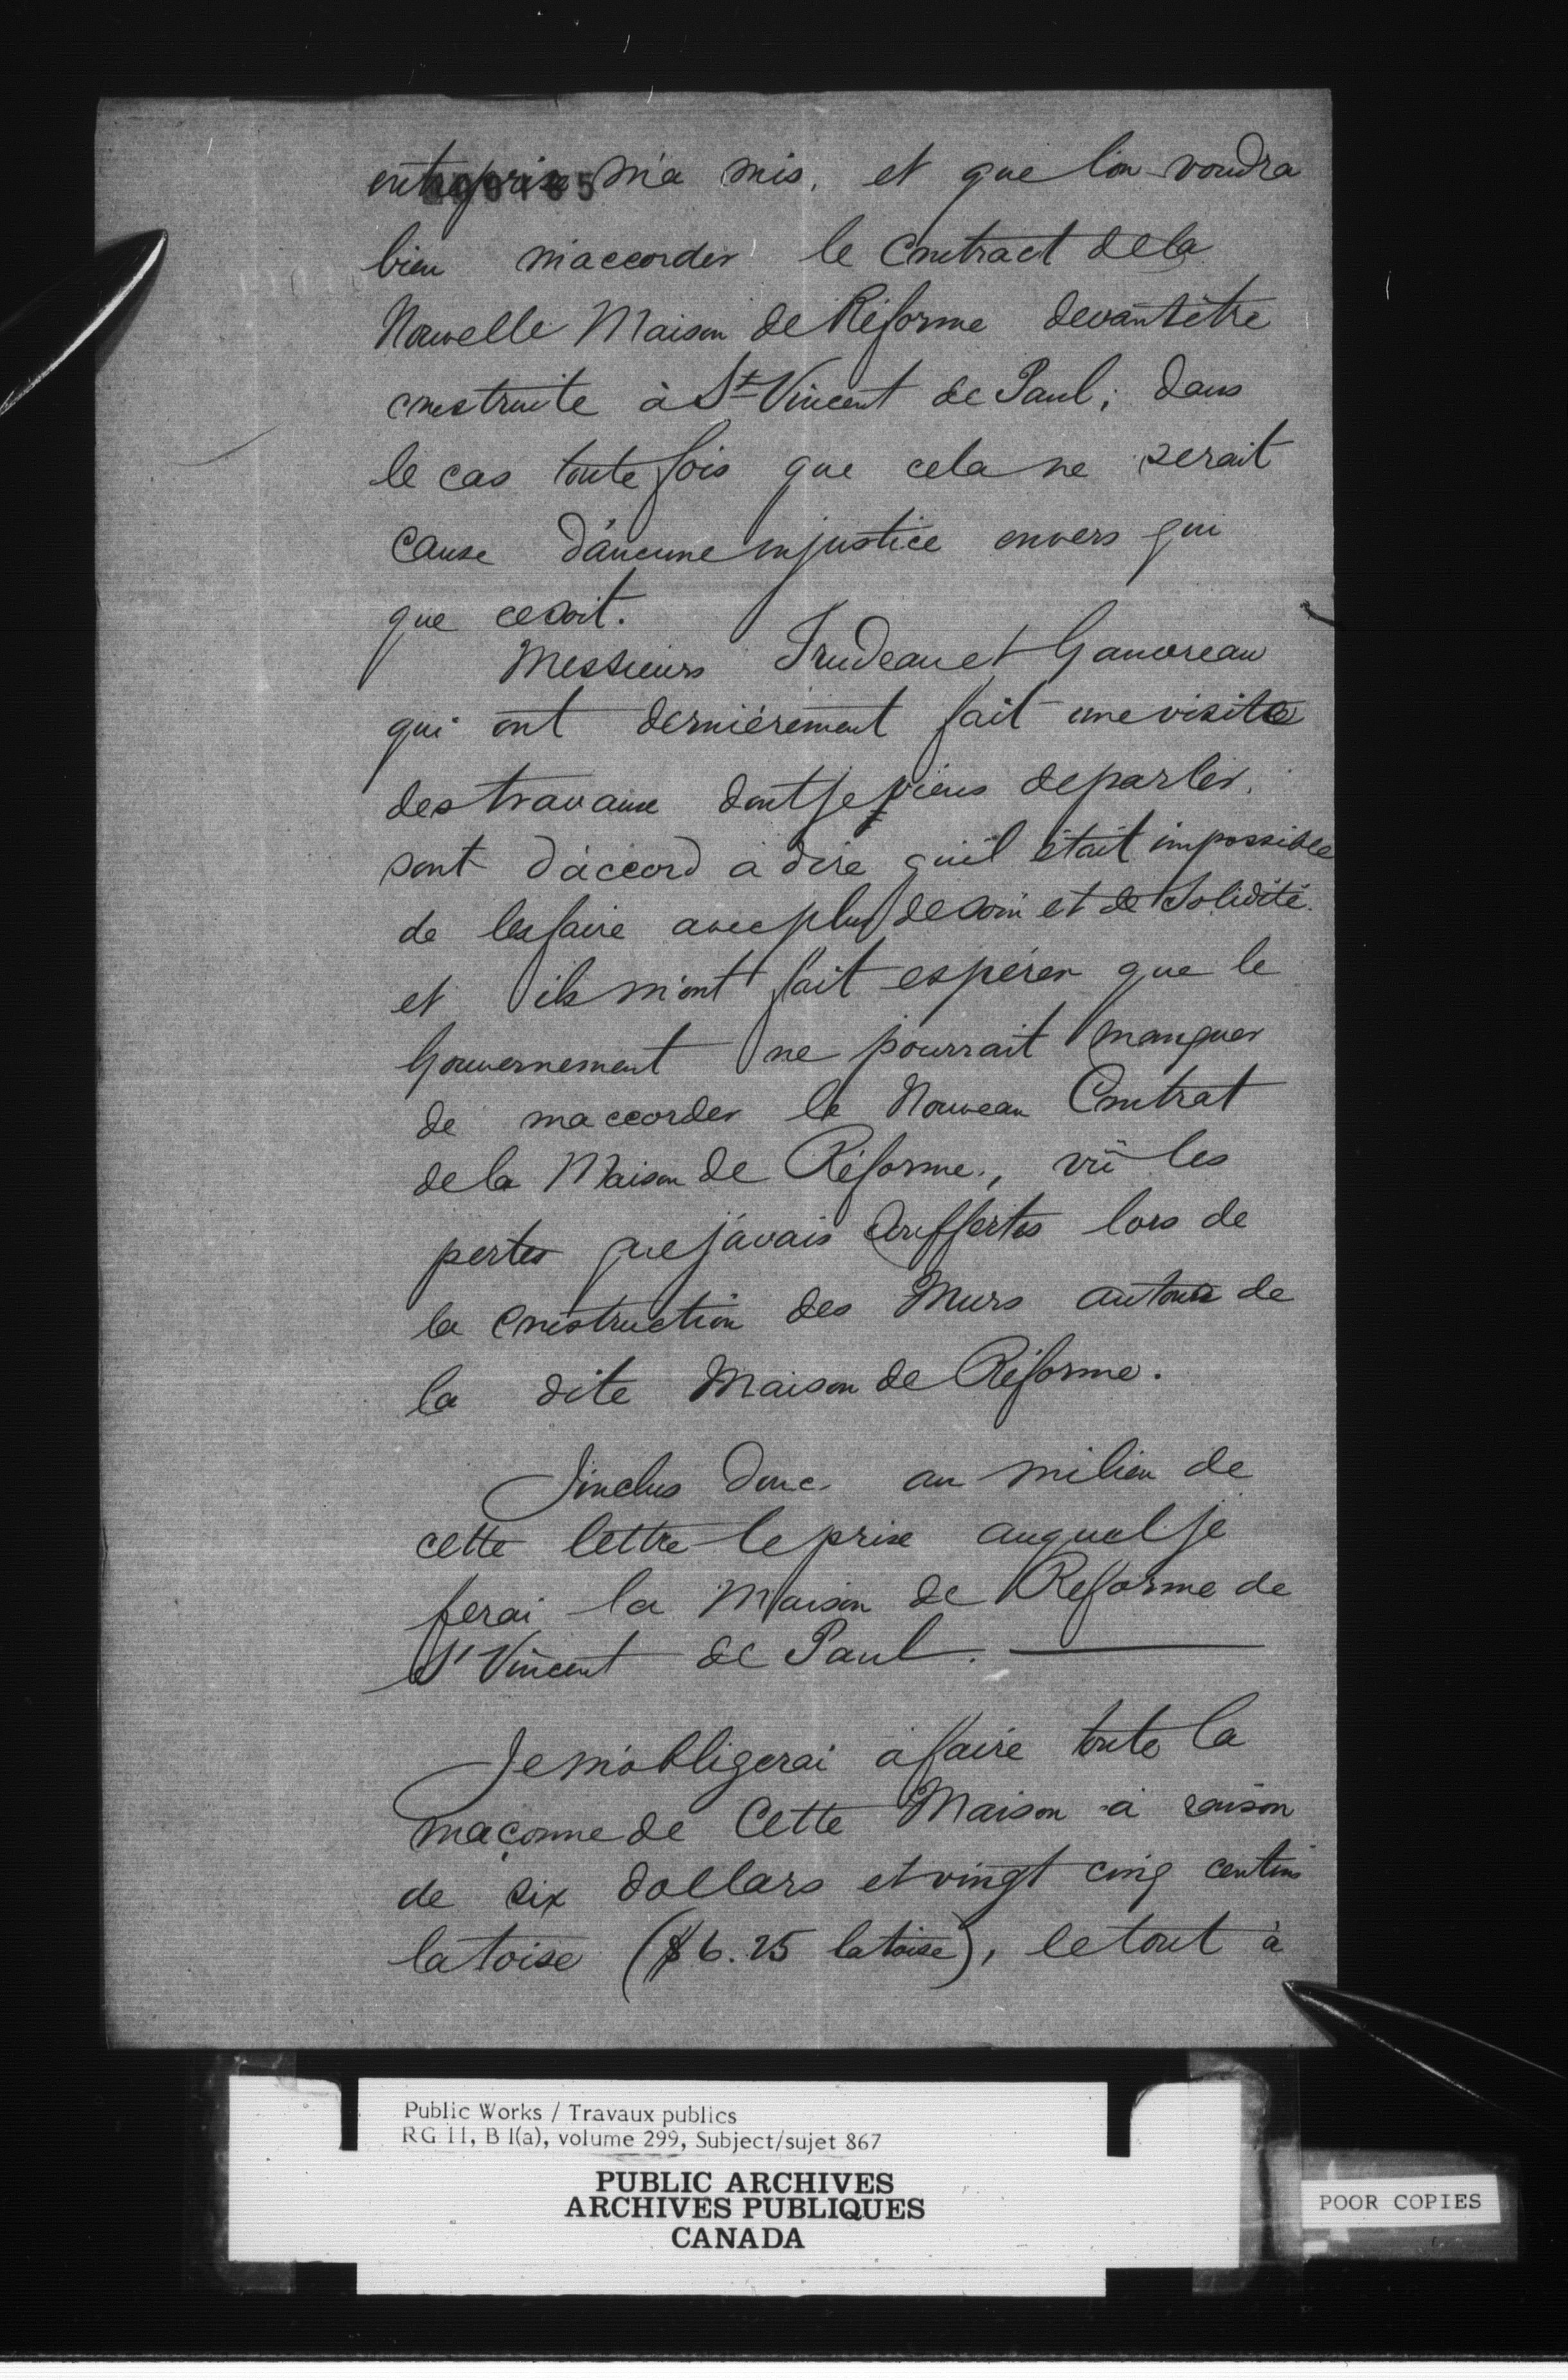 entreprise m'a mis, et que l'on voudra
bien m'accorder le Contract de la
Nouvelle Maison de Réforme devant être
construite à St Vincent de Paul; dans
le cas toute fois que cela ne serait
cause d'aucune injustice envers qui
que ce soit.
Messieurs Trudeau et Gauvreau
qui ont dernièrement fait une visite
des travaux dont je viens de parler,
sont d'accord à dire qu'il était impossible
de les faire avec plus de soin et de Solidité.
et ils m'ont fait espérer que le
Gouvernement ne pourrait manquer
de maccorder le Nouveau Contrat
de la Maison de Réforme., vû les
pertes que j'avais souffertes lors de
la construction des Murs autour de
la dite Maison de Réforme.
J'inclus donc au milieu de
cette lettre le prix auquel je
ferai la Maison de Reforme de
St Vincent de Paul.
Je m'obligerai à faire toute la
maçonne de Cette Maison à raison
de six dollars et vingt cinq centins
la toise ($6.25 la toise), le tout à
Public Works / Travaux publics
RG 11, B 1(a), volume 299, Subject/sujet 867
PUBLIC ARCHIVES
ARCHIVES PUBLIQUES
CANADA
POOR COPIES